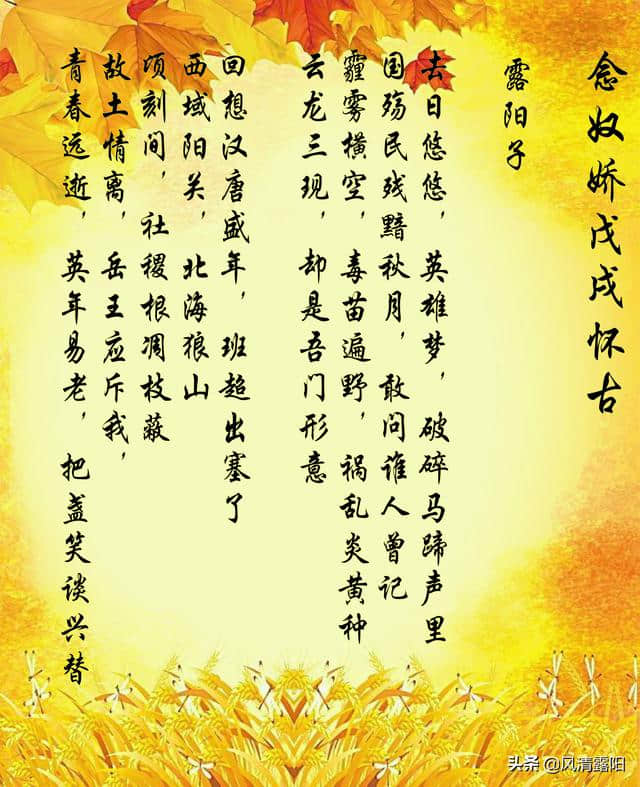 念奴娇戊戌怀古
露阳子
去日悠悠，英雄梦，破碎马蹄声里
国殇民残黯秋月，敢问谁人曾记
霾雾横空，毒苗遍野，祸乱炎黄种
云龙三现，却是吾门形意
回想汉唐盛年，班超出塞了
西域阳关，北海狼山
顷刻间，社稷根凋枝蔽
故土情离，岳王应斥我，
青春远逝，英年易老，把盏笑谈兴替
头条@风清露阳